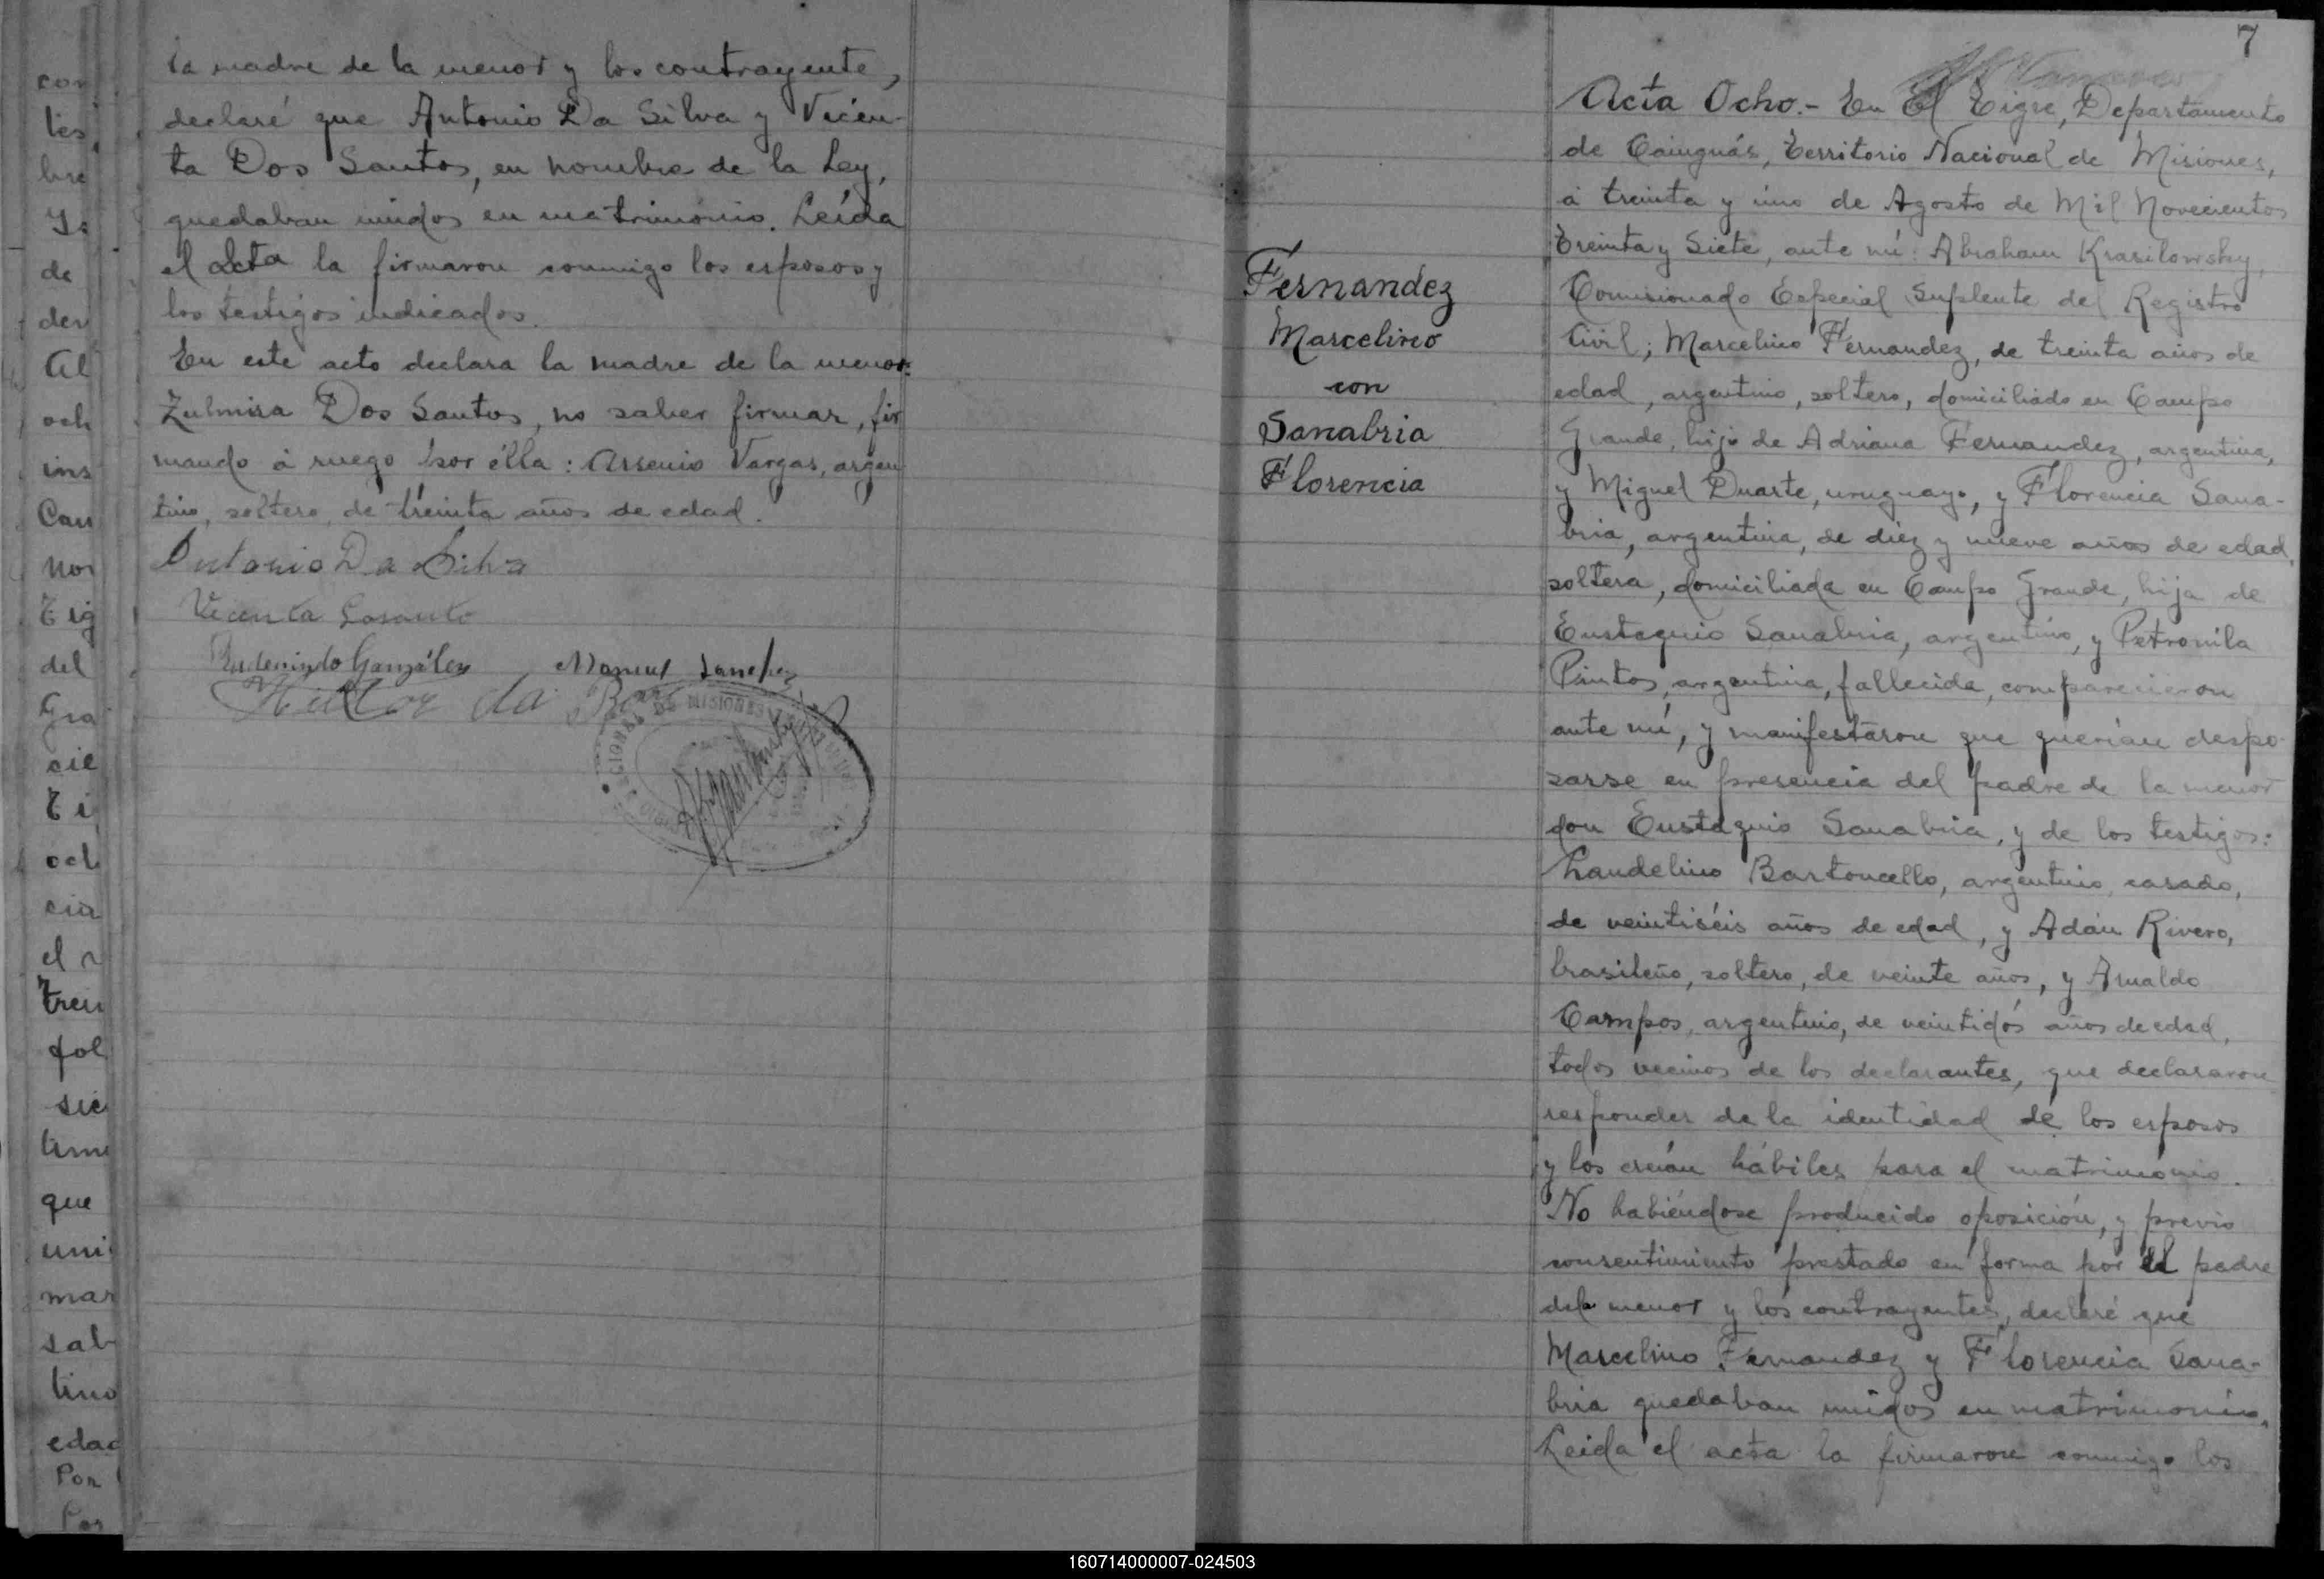 la madre de la menor y los contrayente,
declaré que Antonio Da Silva y Vicen-
ta Dos Santos, en nombre de la Ley,
quedaban unidos en matrimonio. Leída
el acta la firmaron conmigo los esposos y
los testigos indicados.
En este acto declara la madre de la menor:
Zulmira Dos Santos, no saber firmar, fir
mando á ruego por élla: Arsenio Vargas, argen
tino, soltero, de treinta años de edad.
Antonio Da Silva
Vicenta Dosanto
Rudenindo González Manuel Sanchez
da
con
tes,
bre
de
der
Al
och
ins
Can
nor
Tig
del
Gra
cie
Ti
och
cia
el
trein
fol
sie
que
uni
mar
sab
tino
edad
Por
Por
7
Fernandez
Marcelino
con
Sanabria
Florencia
Acta Ocho.- En El Tigre, Departamento
de Cainguás, Territorio Nacional de Misiones,
á treinta y uno de Agosto de Mil Novecientos
Treinta y Siete, ante mí: Abraham Krasilowsky,
Comisionado Especial Suplente del Registro
Civil; Marcelino Fernandez, de treinta años de
edad, argentino, soltero, domiciliado en Campo
Grande, hijo de Adriana Fernandez, argentina,
y Miguel Duarte, uruguayo, y Florencia Sana-
bria, argentina, de diez y nueve años de edad,
soltera, domiciliada en Campo Grande, hija de
Eustaquio Sanabria, argentino, y Petronila
Pintos, argentina, fallecida, comparecieron
ante mí, y manifestaron que querían despo-
sarse en presencia del padre de la menor
don Eustaquio Sanabria, y de los testigos:
Laudelino Bartoncello, argentino, casado,
de veintiséis años de edad, y Adán Rivero,
brasileño, soltero, de veinte años, y Arnaldo
Campos, argentino, de veintidós años de edad,
todos vecinos de los declarantes, que declararon
responder de la identidad de los esposos
y los creían hábiles para el matrimonio.
No habiéndose producido oposición, y previo
consentimiento prestado en forma por el padre
dela menor y los contrayentes, declaré que
Marcelino Fernandez y Florencia Sana-
bria quedaban unidos en matrimonio.
Leida el acta la firmaron conmigo los
160714000007-024503